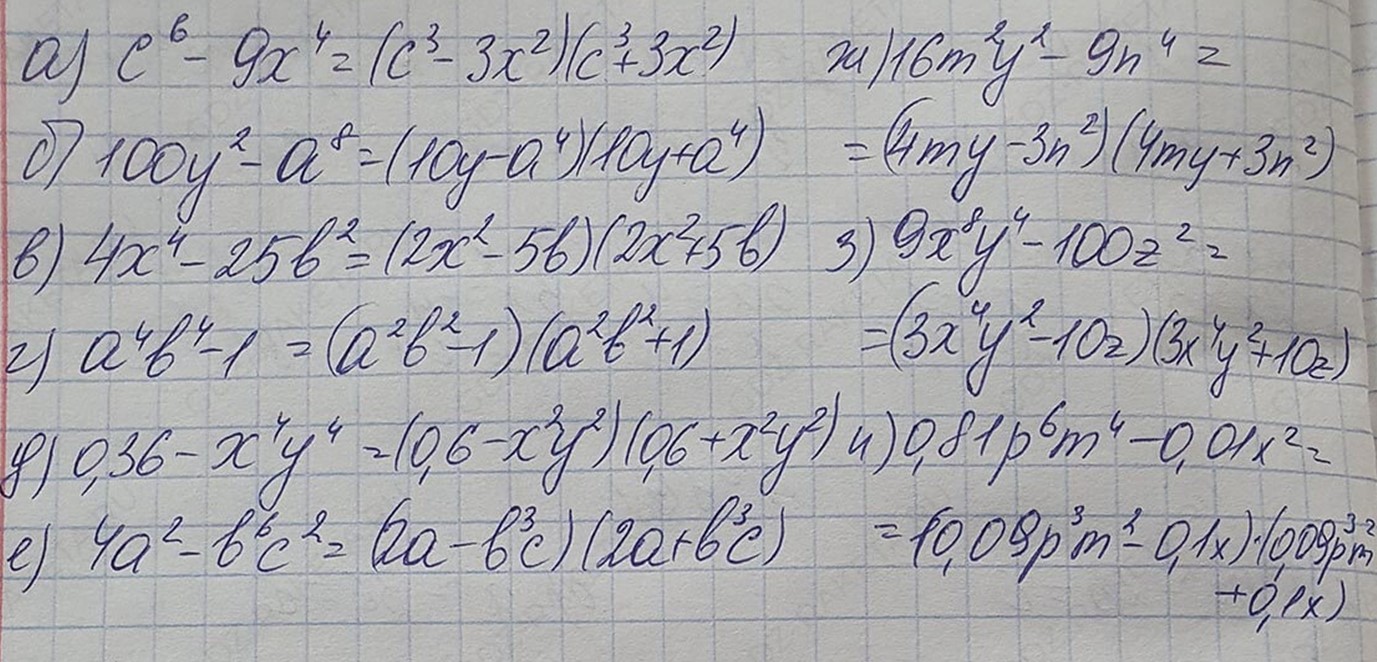 а) c⁶ - 9x⁴ = (c³ - 3x²)(c³ + 3x²)
б) 100y² - a⁸ = (10y - a⁴)(10y + a⁴)
в) 4x⁴ - 25b² = (2x² - 5b)(2x² + 5b)
г) a⁴b⁴ - 1 = (a²b² - 1)(a²b² + 1)
д) 0,36 - x⁴y⁴ = (0,6 - x²y²)(0,6 + x²y²)
е) 4a² - b⁶c² = (2a - b³c)(2a + b³c)
ж) 16m²y² - 9n⁴ =
= (4my - 3n²)(4my + 3n²)
з) 9x⁸y⁴ - 100z² =
= (3x⁴y² - 10z)(3x⁴y² + 10z)
и) 0,81p⁶m⁴ - 0,01x² =
= (0,09p³m² - 0,1x)·(0,09p³m²
+ 0,1x)